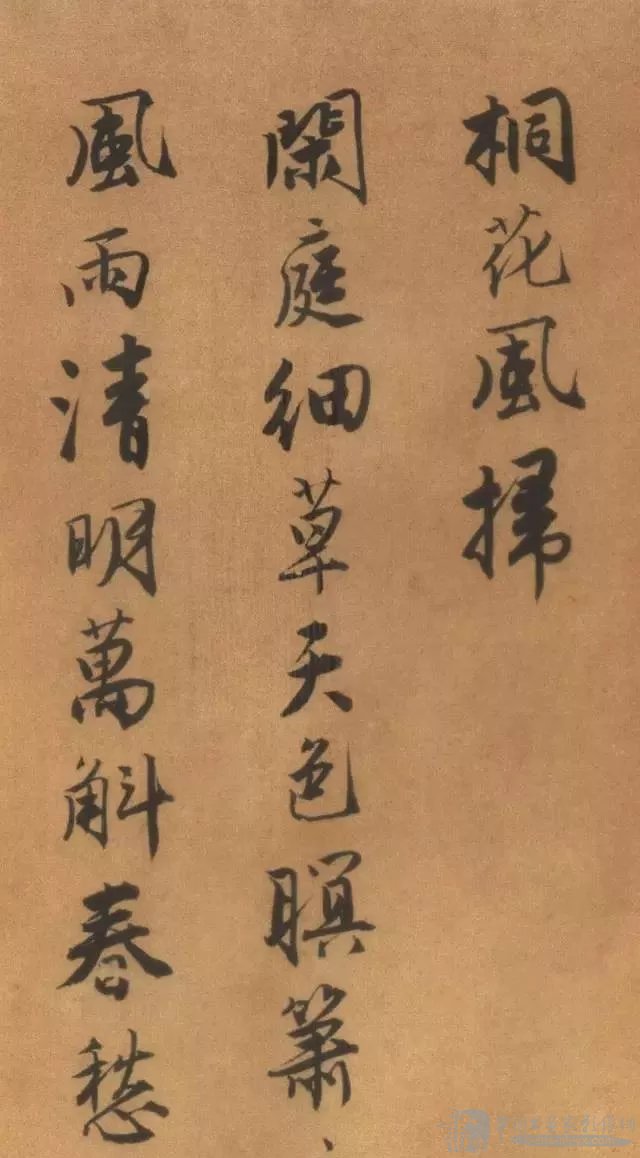 桐花風掃
閑庭細草天色瞑簫、
風雨清明萬斛春愁